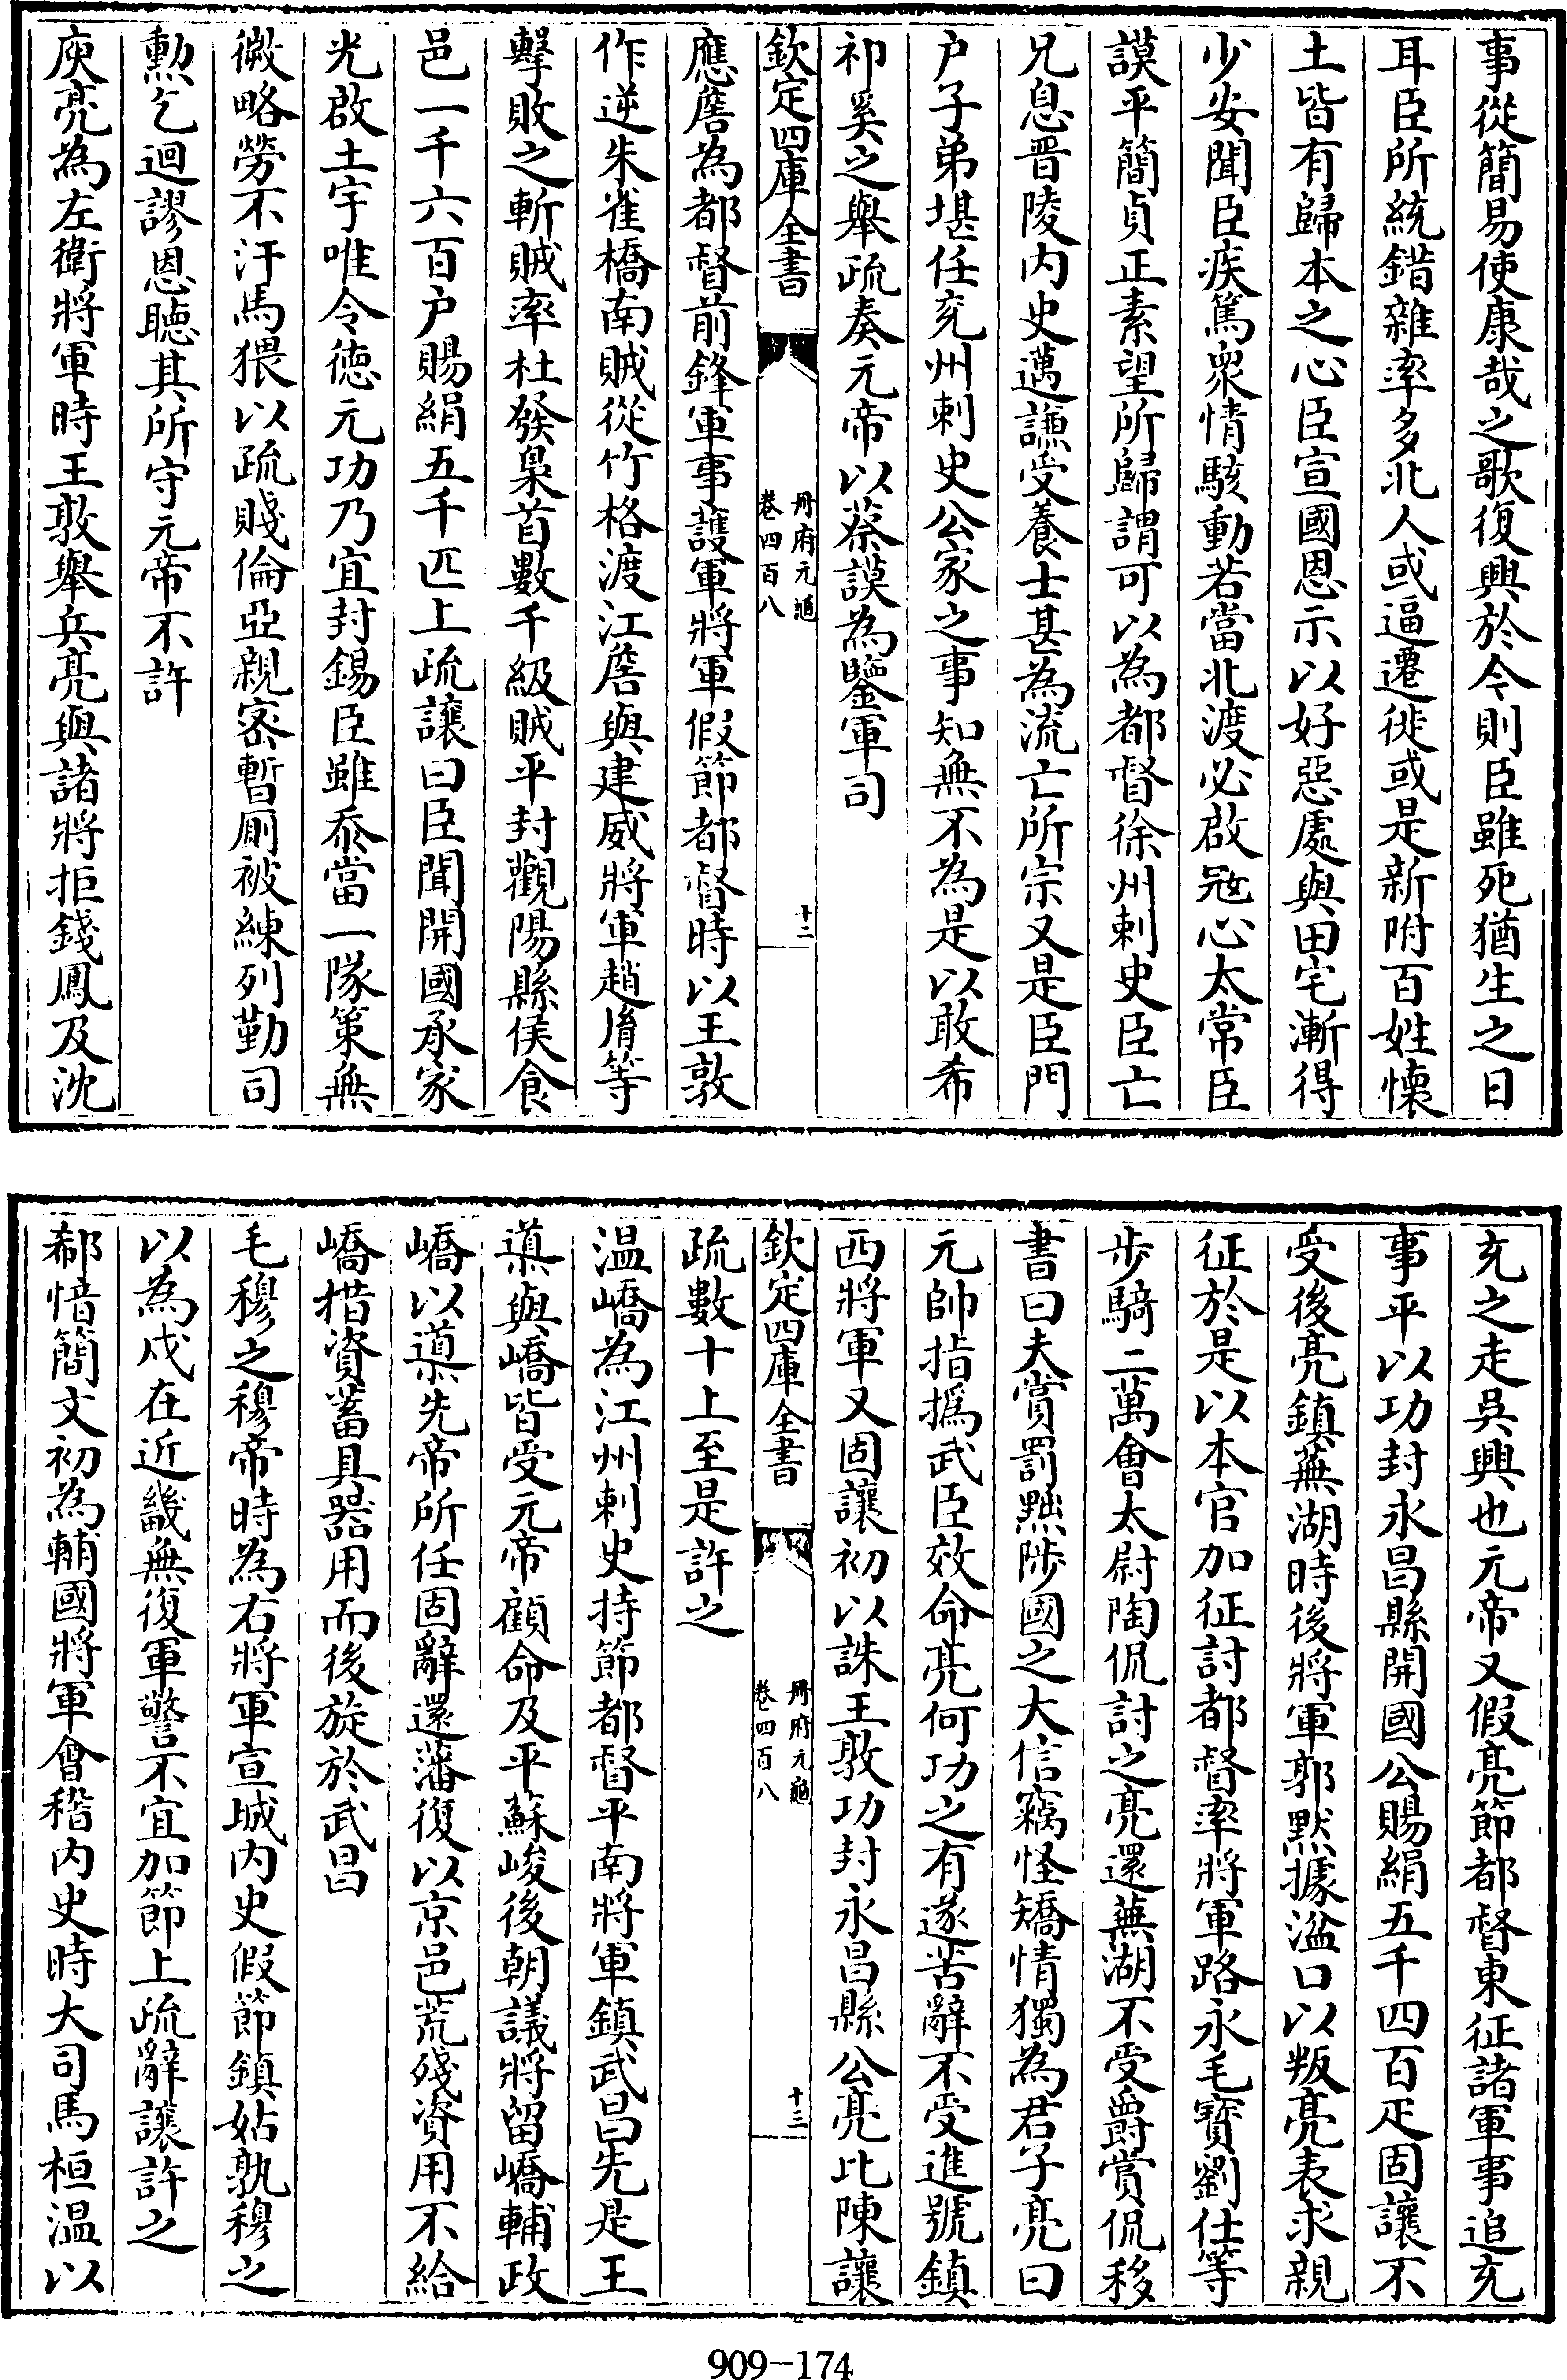 事從簡易使康哉之歌復興於今則臣雖死猶生之日
耳臣所統錯雜率多北人或逼遷徙或是新附百姓懷
土皆有歸本之心臣宣國恩示以好惡處與田宅漸得
少安聞臣疾篤衆情駭動若當北渡必啟寇心太常臣
謨平簡貞正素望所歸謂可以為都督徐州刺史臣亡
兄息晋陵内史邁謙受養士甚為流亡所宗又是臣門
户子弟堪任兖州刺史公家之事知無不為是以敢希
祁奚之舉疏奏元帝以蔡謨為鑒軍司
欽定四庫全書
冊府元龜
卷四百八
十二
應詹為都督前鋒軍事護軍將軍假節都督時以王敦
作逆朱雀橋南賊從竹格渡江詹與建威將軍趙𦙍等
擊敗之斬賊率杜發梟首數千級賊平封觀陽縣侯食
邑一千六百户賜絹五千匹上疏讓曰臣聞開國承家
光啟土宇唯令德元功乃宜封錫臣雖忝當一隊策無
微略勞不汗馬猥以疏賤倫亞親密暫厠被練列勤司
勲乞迴謬恩聽其所守元帝不許
庾亮為左衛將軍時王敦舉兵亮與諸將拒錢鳳及沈
充之走吳興也元帝又假亮節都督東征諸軍事追充
事平以功封永昌縣開國公賜絹五千四百疋固讓不
受後亮鎮蕪湖時後將軍郭默據湓口以叛亮表求親
征於是以本官加征討都督率將軍路永毛寳劉仕等
步騎二萬會太尉陶侃討之亮還蕪湖不受爵賞侃移
書曰夫賞罰黜陟國之大信竊怪矯情獨為君子亮曰
元帥指撝武臣效命亮何功之有遂苦辭不受進號鎮
西將軍又固讓初以誅王敦功封永昌縣公亮比陳讓
欽定四庫全書
冊府元龜
卷四百八
十三
疏數十上至是許之
温嶠為江州刺史持節都督平南將軍鎮武昌先是王
導與嶠皆受元帝顧命及平蘇峻後朝議將留嶠輔政
嶠以導先帝所任固辭還藩復以京邑荒殘資用不給
嶠措資蓄具器用而後旋於武昌
毛穆之穆帝時為右將軍宣城内史假節鎮姑孰穆之
以為戍在近畿無復軍警不宜加節上疏辭讓許之
郗愔簡文初為輔國將軍會稽内史時大司馬桓温以
909-174